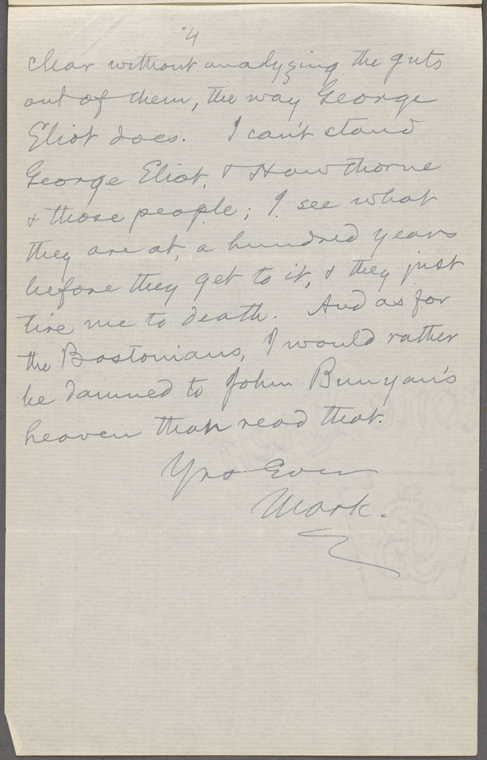 4
clear without analyzing the guts
out of them, the way George
Eliot does. I can't stand
George Eliot, & Hawthorne
& those people; I see what
they are at, a hundred years
before they get to it, & they just
tire me to death. And as for
the Bostonians, I would rather
be damned to John Bunyan's
heaven than read that.
Yrs Ever
Mark.